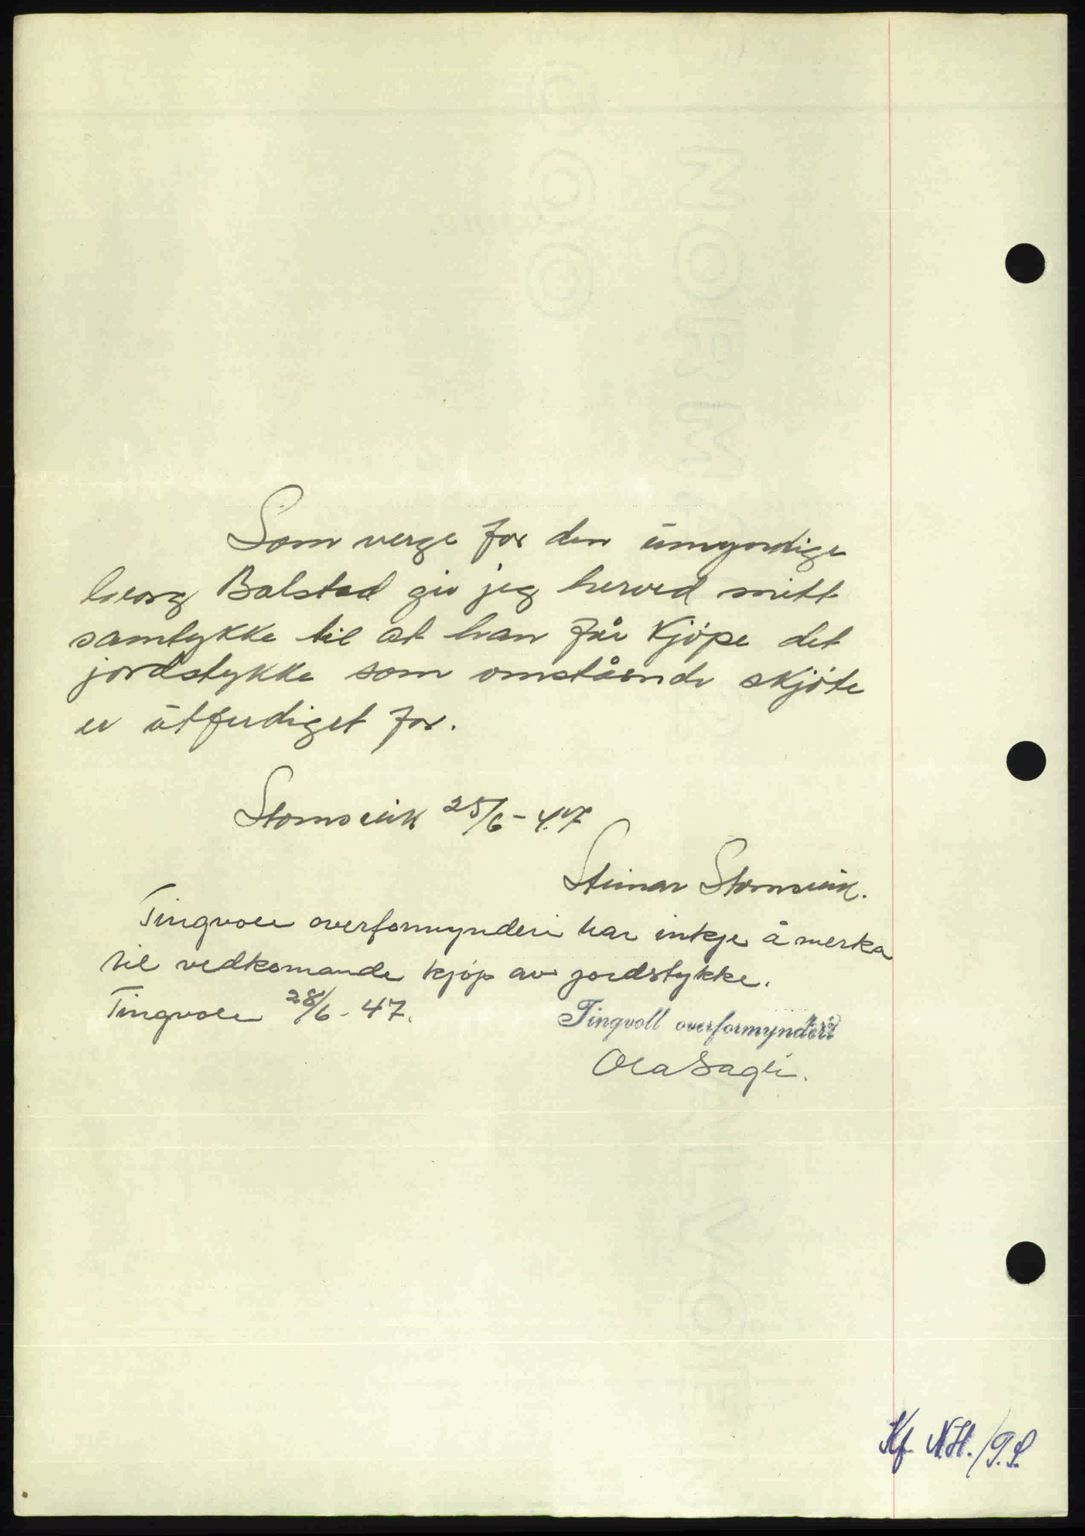 Som verge for den umyndige
Georg Balstad gir jeg herved mitt
samtykke til at han får kjöpe det
jordstykke som omstående skjöte
er utferdiget for.
Stomsvik 25/6-47
Steinar Stomsvik.
Tingvoll overformynderi har inkje å merka
til vedkomande kjøp av jordstykke.
Tingvoll 28/6-47.
Tingvoll overformynderi
Ola Sagli.
Kf. N.H./